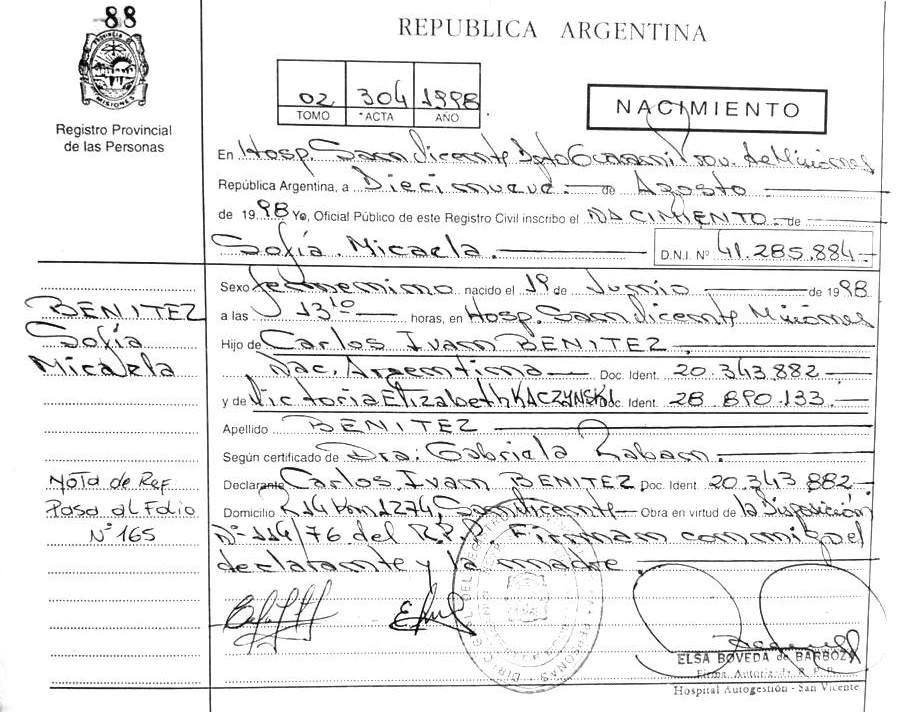 88
PROVINCIA DE MISIONES
Registro Provincial
de las Personas
REPUBLICA ARGENTINA
02 304 1998
TOMO *ACTA AÑO
NACIMIENTO
En Hosp. San Vicente Dpto Guaraní Prov. de Misiones
República Argentina, a Diecinueve de Agosto
de 1998 Yo, Oficial Público de este Registro Civil inscribo el NACIMIENTO de
Sofía Micaela. D.N.I. Nº 41.285.884
Sexo femenino nacido el 19 de Junio de 1998
a las 13 10 horas, en Hosp. San Vicente Misiones
Hijo de Carlos Ivan BENITEZ
Nac. Argentina Doc. Ident. 20.343.882
y de Victoria Elizabeth KACZYNSKI Doc. Ident. 28.890.133.
Apellido BENITEZ
Según certificado de Dra: Gabriela
Declarante Carlos Ivan BENITEZ Doc. Ident. 20.343.882
Domicilio R14 Km 1274, San Vicente Obra en virtud de la Disposición
Nº 114/76 del R.P.P. Firman conmigo el
declarante y la madre.
BENITEZ
Sofía
Micaela
Nota de Ref
Pasa al Folio
Nº 165
ELSA BOVEDA de BARBOZA
Firma Autorizada R.P.P.
Hospital Autogestión - San Vicente